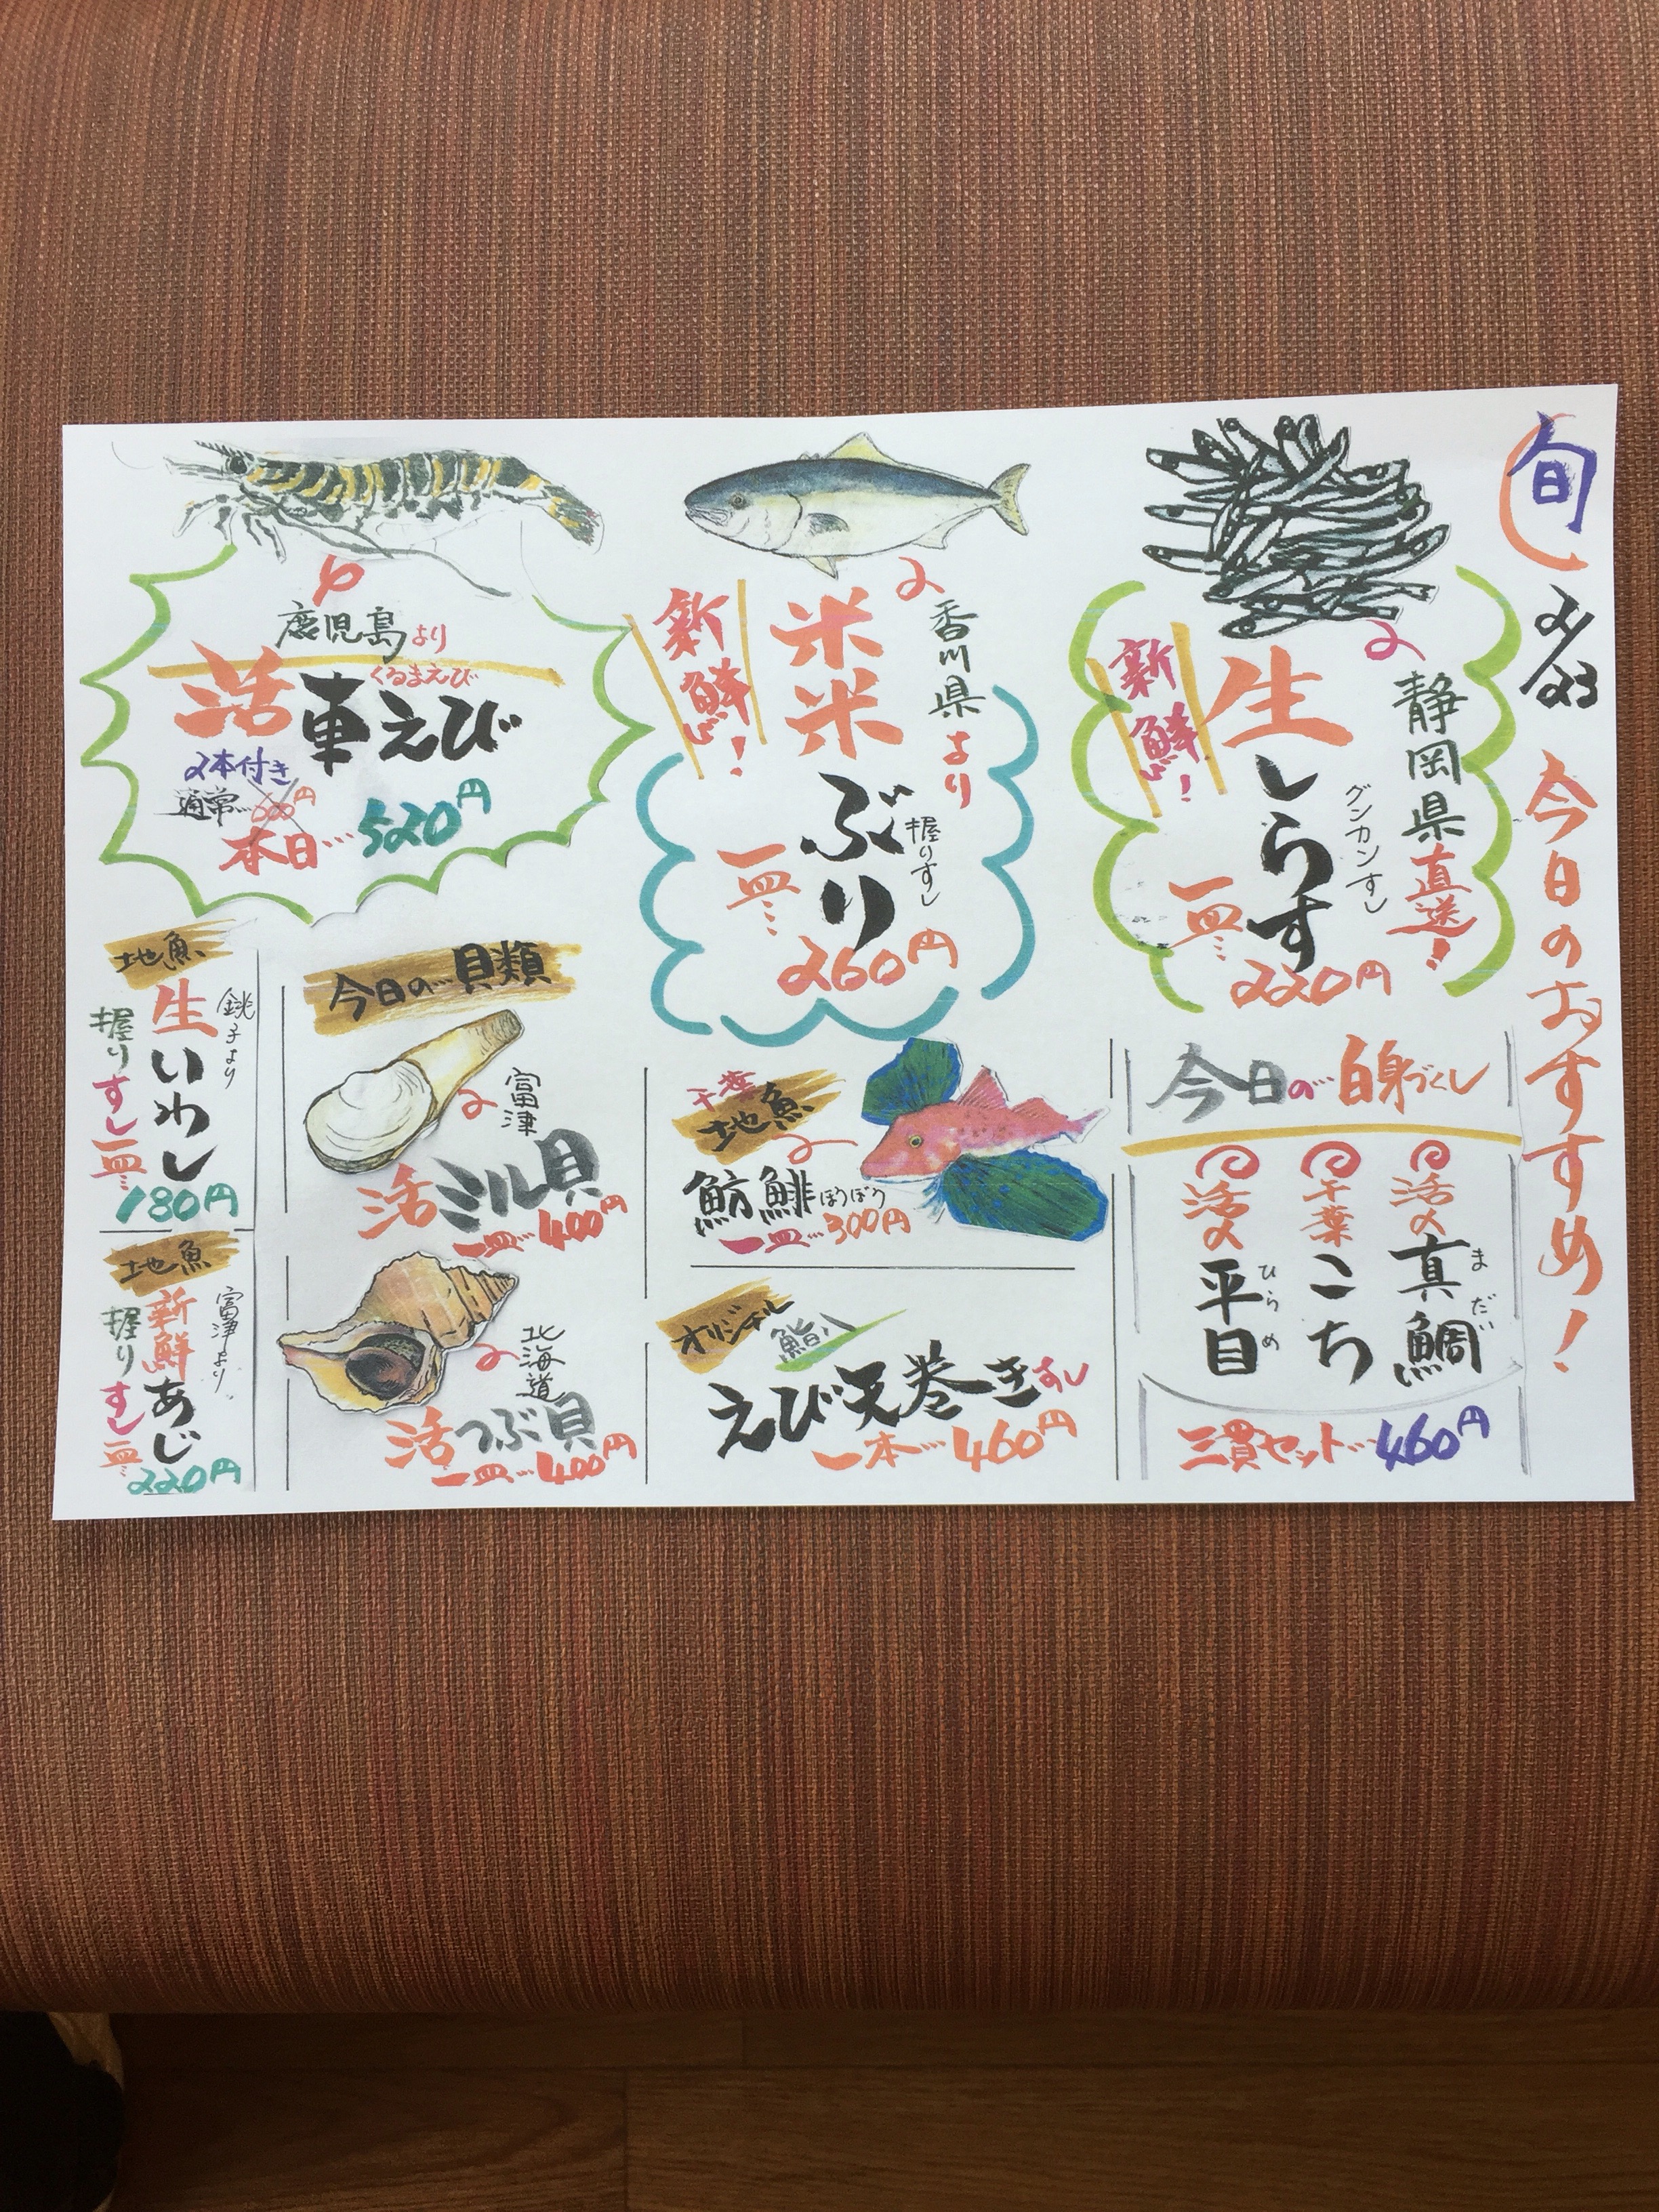 旬
2/23
今日のおすすめ!
静岡県直送!
新鮮!
生しらす
グンカンすし
一皿…220円
香川県より
新鮮!
ぶり
握りすし
一皿…260円
鹿児島より
くるまえび
活車えび
2本付き
通常…600円
本日…520円
今日の白身づくし
活〆真鯛
まだい
千葉こち
活〆平目
ひらめ
三貫セット…460円
千葉
地魚
魴鮄ほうぼう
一皿…300円
オリジナル
鮨八
えび天巻きすし
一本…460円
今日の貝類
富津
活ミル貝
一皿…400円
北海道
活つぶ貝
一皿…400円
地魚
銚子より
生いわし
握りすし一皿…
180円
地魚
富津より
新鮮あじ
握りすし一皿…
220円